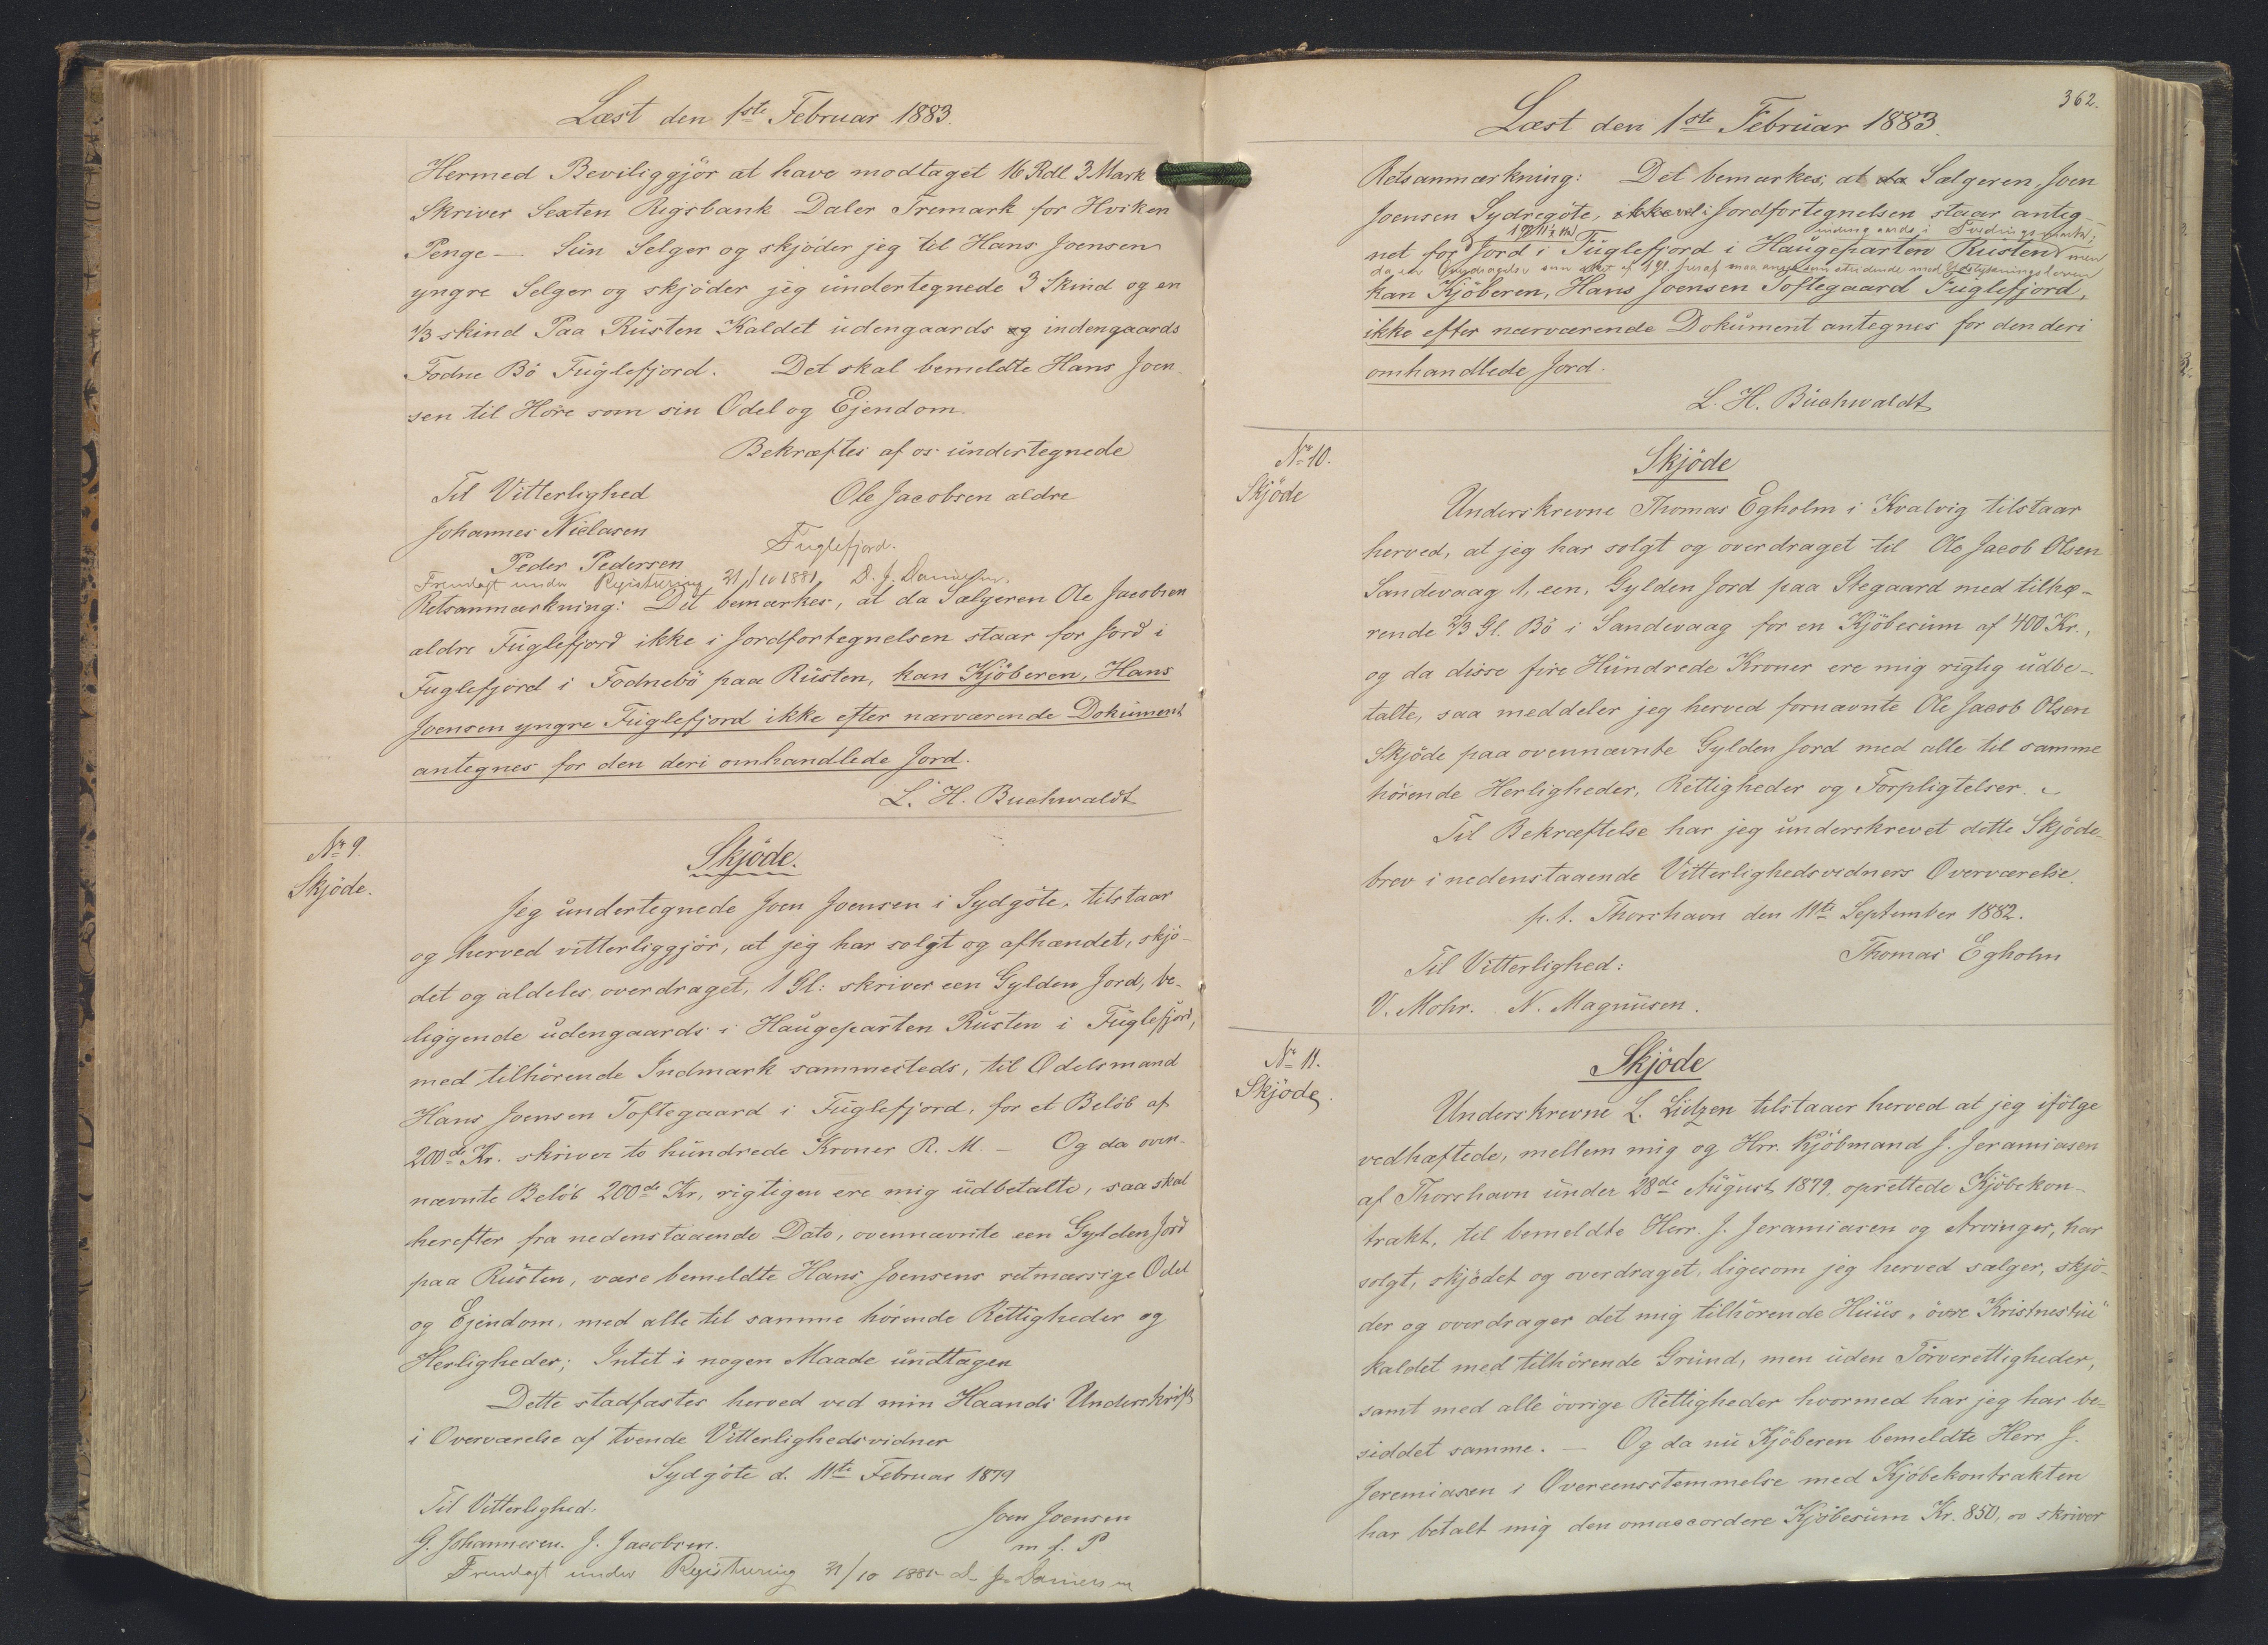 Læst den 1ste Februar 1883.
Hermed Beviliggjör at have modtaget 16 Rdl 3 Mark
Skriver Sexten Rigsbank Daler Tremark for Hviken
Penge – Sün Selger og skjöder jeg til Hans Joensen
yngre Selger og skjöder jeg undertegnede 3 Skind og en
1/3 skind Paa Rüsten Kaldet üdengaards og indengaards
Fodne Bö Fuglefjord. Det skal bemeldte Hans Joen-
sen til Höre som sin Odel og Ejendom.
Bekræftes af os undertegnede
Til Vitterlighed Ole Jacobsen ældre
Johannes Nielasen Fuglefjord.
Peder Pedersen
Fremlagt under Registrering 21/10 1881 D. J. Danielsen
Retsanmærkning: Det bemærkes, at da Sælgeren Ole Jacobsen
ældre Fuglefjord ikke i Jordfortegnelsen staar for Jord i
Fuglefjord i Fodnebö paa Rüsten, kan Kjöberen, Hans
Joensen yngre Fuglefjord ikke efter nærværende Dokument
antegnes for den deri omhandlede Jord.
L. H. Buchwaldt
No 9.
Skjöde.
Skjöde.
Jeg undertegnede Joen Joensen i Sydgöte, tilstaar
og herved vitterliggjör, at jeg har solgt og afhændet, skjö-
det og aldeles overdraget, 1 Gl: skriver een Gylden Jord, be-
liggende udengaards i Haugeparten Rüsten i Fuglefjord,
med tilhörende Indmark sammesteds, til Odelsmand
Hans Joensen Toftegaard i Fuglefjord, for et Belöb af
200de Kr. skriver to hundrede Kroner R. M. – Og da oven-
nævnte Belöb 200de Kr, rigtigen ere mig udbetalte, saa skal
herefter fra nedenstaaende Dato, ovennævnte een Gylden Jord
paa Rüsten, være bemeldte Hans Joensens retmæssige Odel
og Ejendom, med alle til samme hörende Rettigheder og
Herligheder; Intet i nogen Maade undtagen
Dette stadfæstes herved ved min Haands Underskrift
i Overværelse af tvende Vitterlighedsvidner
Sydgöte d. 11te Februar 1879
Til Vitterlighed: Joen Joensen
G. Johannesen. J. Jacobsen. m f. P
Fremlagt under Registrering 21/10 1881 D J. Danielsen
362.
Læst den 1ste Februar 1883.
Retsanmærkning: Det bemærkes, at da Sælgeren, Joen
Joensen Sydregöte, ikke vel i Jordfortegnelsen staar anteg-
udengaards i
net for Jord i Fuglefjord i Haugeparten Rüsten men
da en Overdragelse som sket af 1 Gl. heraf maa anses som stridende med Udstykningsloven
kan Kjöberen, Hans Joensen Toftegaard Fuglefjord,
ikke efter nærværende Dokument antegnes for den deri
omhandlede Jord.
L. H. Buchwaldt
No 10.
Skjöde
Skjöde
Underskrevne Thomas Egholm i Kvalvig tilstaar
herved, at jeg har solgt og overdraget til Ole Jacob Olsen
Sandevaag 1, een, Gylden Jord paa Stegaard med tilhö-
rende 2/3 Gl. Bö i Sandevaag for en Kjöbesum af 400 Kr.,
og da disse fire Hundrede Kroner ere mig rigtig udbe-
talte, saa meddeler jeg herved fornævnte Ole Jacob Olsen
Skjöde paa ovennævnte Gylden Jord med alle til samme
hörende Herligheder, Rettigheder og Forpligtelser.
Til Bekræftelse har jeg underskrevet dette Skjöde-
brev i nedenstaaende Vitterlighedsvidners Overværelse.
p. t. Thorshavn den 11te September 1882.
Til Vitterlighed: Thomas Egholm
V. Mohr. N. Magnusen.
No 11.
Skjöde.
Skjöde
Underskrevne L. Lützen tilstaaer herved at jeg ifölge
vedhæftede, mellem mig og Hrr. Kjöbmand J. Jeramiasen
af Thorshavn under 28de August 1879, oprettede Kjöbekon-
trakt, til bemeldte Herr. J. Jeramiasen og Arvinger, har
solgt, skjödet og overdraget, ligesom jeg herved sælger, skjö-
der og overdrager det mig tilhörende Huus „övre Kristnestue"
kaldet med tilhörende Grund, men uden Törverettigheder,
samt med alle övrige Rettigheder hvormed har jeg har be-
siddet samme. – Og da nu Kjöberen bemeldte Herr J.
Jeremiasen i Overeensstemmelse med Kjöbekontrakten
har betalt mig den omaccordere Kjöbesum Kr. 850, oo skriver